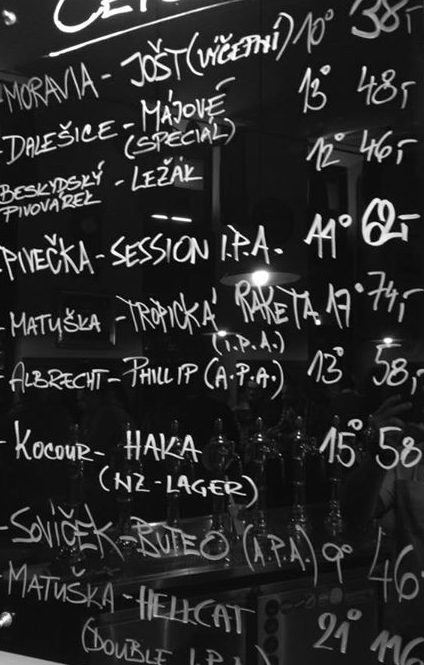 MORAVIA - JOŠT (VÍČEPNÍ) 10° 38,-
- DALEŠICE - MÁJOVÉ 13° 48,-
(SPECIÁL)
BESKYDSKÝ - LEŽÁK 12° 46,-
PIVOVÁREK
PIVEČKA - SESSION I.P.A. 11° 62,-
- MATUŠKA - TROPICKÁ RAKETA 17° 74,-
(I.P.A.)
- ALBRECHT - PHILLIP (A.P.A.) 13° 58,-
- KOCOUR - HAKA 15° 58
(NZ-LAGER)
- SOVÍČEK - BUTEO (A.P.A.) 9° 46
- MATUŠKA - HELLCAT 21° 116
(DOUBLE I.P.